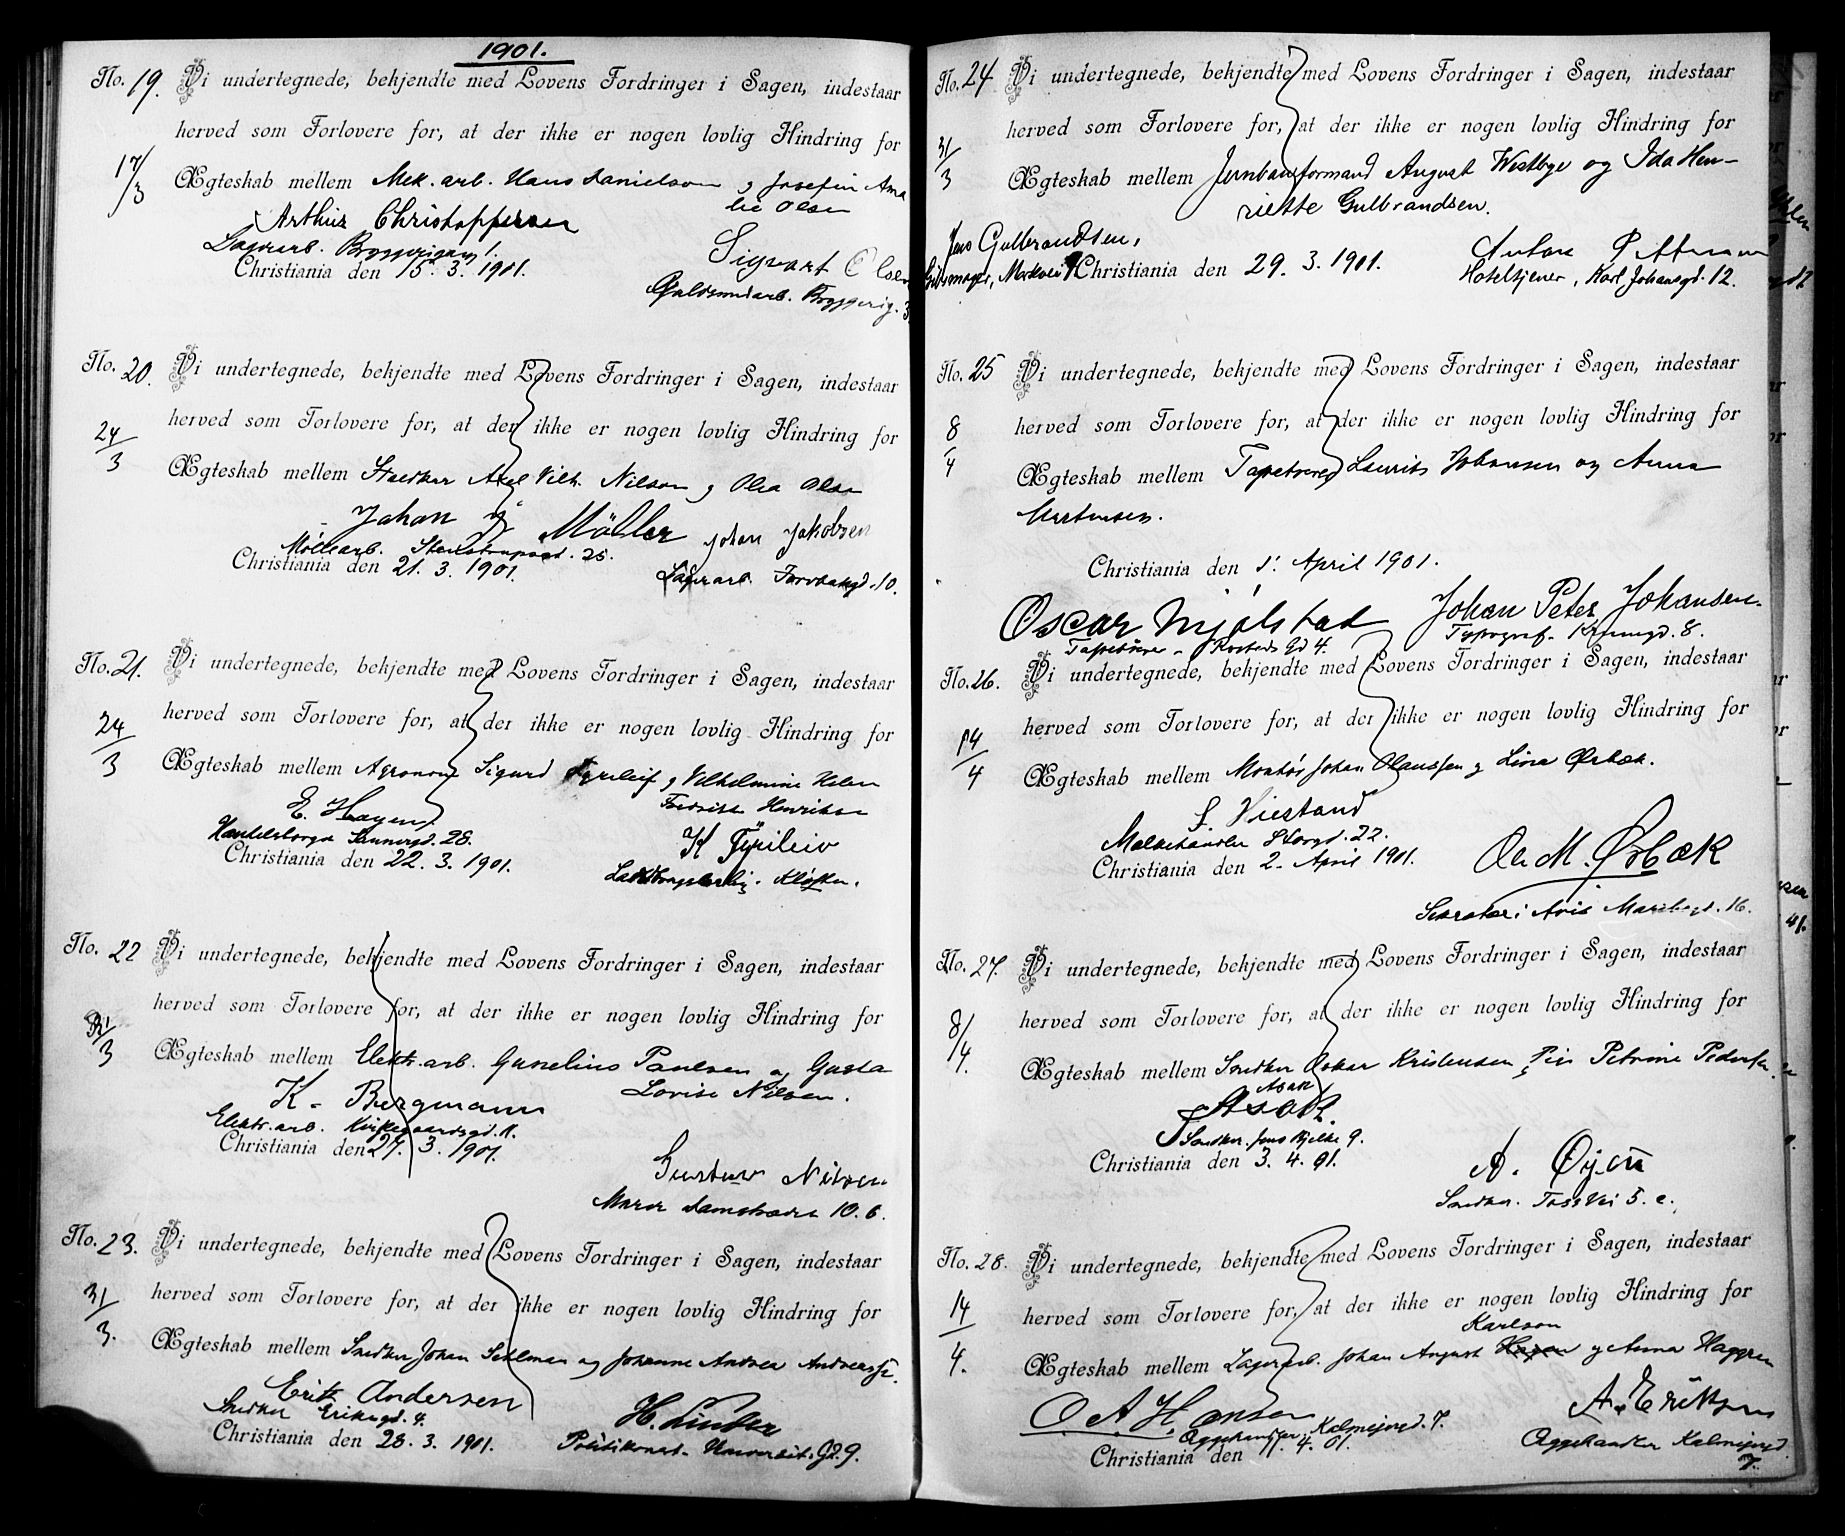 1901.
No. 19. Vi undertegnede, bekjendte med Lovens Fordringer i Sagen, indestaar
herved som Forlovere for, at der ikke er nogen lovlig Hindring for
17/3
Ægteskab mellem Mek. arb. Hans Danielsen og Josefin Ama
lie Olsen
Arthur Christoffersen
Lagerarb. Bryggerigang 1.
Sigvart Olsen
Christiania den 15. 3. 1901.
Guldsmedarb. Bryggerig. 3.
No. 20. Vi undertegnede, bekjendte med Lovens Fordringer i Sagen, indestaar
herved som Forlovere for, at der ikke er nogen lovlig Hindring for
24/3
Ægteskab mellem Snedker Axel Vilh. Nilsen og Olea Olsen
Johan Møller Johan Jakobsen
Møllearb. Stenstrupsgd. 25.
Christiania den 21. 3. 1901.
Lagerarb. 10.
No. 21. Vi undertegnede, bekjendte med Lovens Fordringer i Sagen, indestaar
herved som Forlovere for, at der ikke er nogen lovlig Hindring for
24/3
Ægteskab mellem Agronom Sigurd Fyrileif og Vilhelmine Helen
Fredrikke Henriksen
E. Hagen
28.
K Fyrileiv
Christiania den 22. 3. 1901.
Kløften.
No. 22 Vi undertegnede, bekjendte med Lovens Fordringer i Sagen, indestaar
herved som Forlovere for, at der ikke er nogen lovlig Hindring for
31/3
Ægteskab mellem Elektr. arb. Gunelius Paulsen og Gusta
Lovise Nilsen.
K. Bergmann
Elektr. arb. Kirkegaardsgd. 11.
Christiania den 27. 3. 1901.
Gustav Nilsen
Murer 10. b.
No. 23. Vi undertegnede, bekjendte med Lovens Fordringer i Sagen, indestaar
herved som Forlovere for, at der ikke er nogen lovlig Hindring for
31/3.
Ægteskab mellem Snedker Johan Sehlman og Johanne Andrea Andreassen.
Erik Andersen
Snedker Eriksgd. 4.
H. Linder
Christiania den 28. 3. 1901.
Politikonst. Universit. Gd 9.
No. 24 Vi undertegnede, bekjendte med Lovens Fordringer i Sagen, indestaar
herved som Forlovere for, at der ikke er nogen lovlig Hindring for
31/3
Ægteskab mellem Jernbaneformand August Westbye og Ida Hen-
riette Gulbrandsen.
Jens Gulbrandsen,
Anton Pettersen
Markvei 9 Christiania den 29. 3. 1901.
Hoteltjener, Karl Johansgd. 12.
No. 25 Vi undertegnede, bekjendte med Lovens Fordringer i Sagen, indestaar
herved som Forlovere for, at der ikke er nogen lovlig Hindring for
8/4
Ægteskab mellem Tapetserer Laurits Johansen og Anna
Martinsen.
Christiania den 1. April 1901.
Oscar Mjølstad Johan Peter Johansen.
Tapetserer - Rosteds Gd 4. Typograf - 8.
No. 26. Vi undertegnede, bekjendte med Lovens Fordringer i Sagen, indestaar
herved som Forlovere for, at der ikke er nogen lovlig Hindring for
14/4
Ægteskab mellem Montør Johan Claussen og Lina Ørbæk.
S. Viestand
Melkehandler Storgd. 22.
Christiania den 2. April 1901.
Ole M. Ørbæk
Sekretær i Avis Maribogd. 16.
No. 27. Vi undertegnede, bekjendte med Lovens Fordringer i Sagen, indestaar
herved som Forlovere for, at der ikke er nogen lovlig Hindring for
8/4.
Ægteskab mellem Snedker Oskar Kristensen og Petrine Pedersen.
Asak
Asak
Snedker. Jens Bjelke 9.
Christiania den 3. 4. 01.
A. Øyen
Snedker. Tøss Vei 5. c.
No. 28. Vi undertegnede, bekjendte med Lovens Fordringer i Sagen, indestaar
herved som Forlovere for, at der ikke er nogen lovlig Hindring for
Karlson
14/4.
Ægteskab mellem Lagerarb. Johan August Hagen og Anna Haggren
O. A. Hansen
Æggehandler, Kalmejergd. 7.
A. Eriksen
Christiania den 11. 4. 01.
Æggehandler Kalmejergd
7.